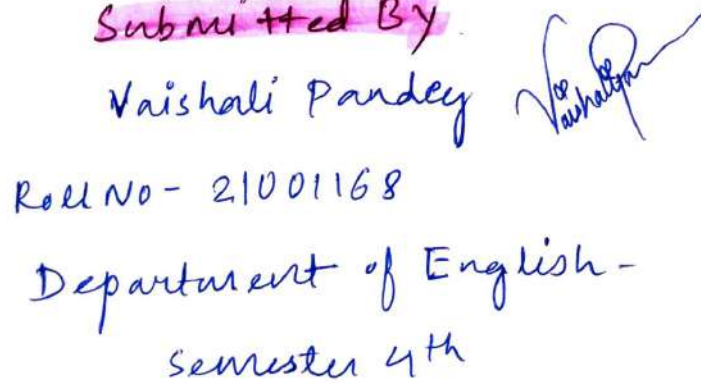 Submitted By
Vaishali Pandey
Roll No - 21001168
Department of English -
Semester 4th